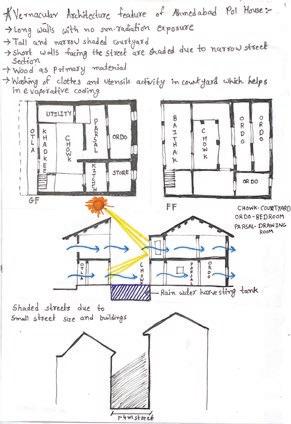 * Vernacular Architecture feature of Ahmedabad Pol House:-
→ Long walls with no sun radiation exposure
→ Tall and narrow shaded courtyard
→ Short walls facing the street are shaded due to narrow street
section
→ Wood as primary material
→ Washing of clothes and utensils activity in courtyard which helps
in evaporative cooling
UTILITY
OTLA
KHADKEE
CHOWK
PARSAL
ORDO
STORE
GF
BAITHAK
CHOWK
ORDO
ORDO
ORDO
FF
CHOWK-COURTYARD
ORDO-BEDROOM
PARSAL-DRAWING
ROOM
OTLA
PARSAL
ORDO
Rain water harvesting tank
Shaded streets due to
small street size and buildings